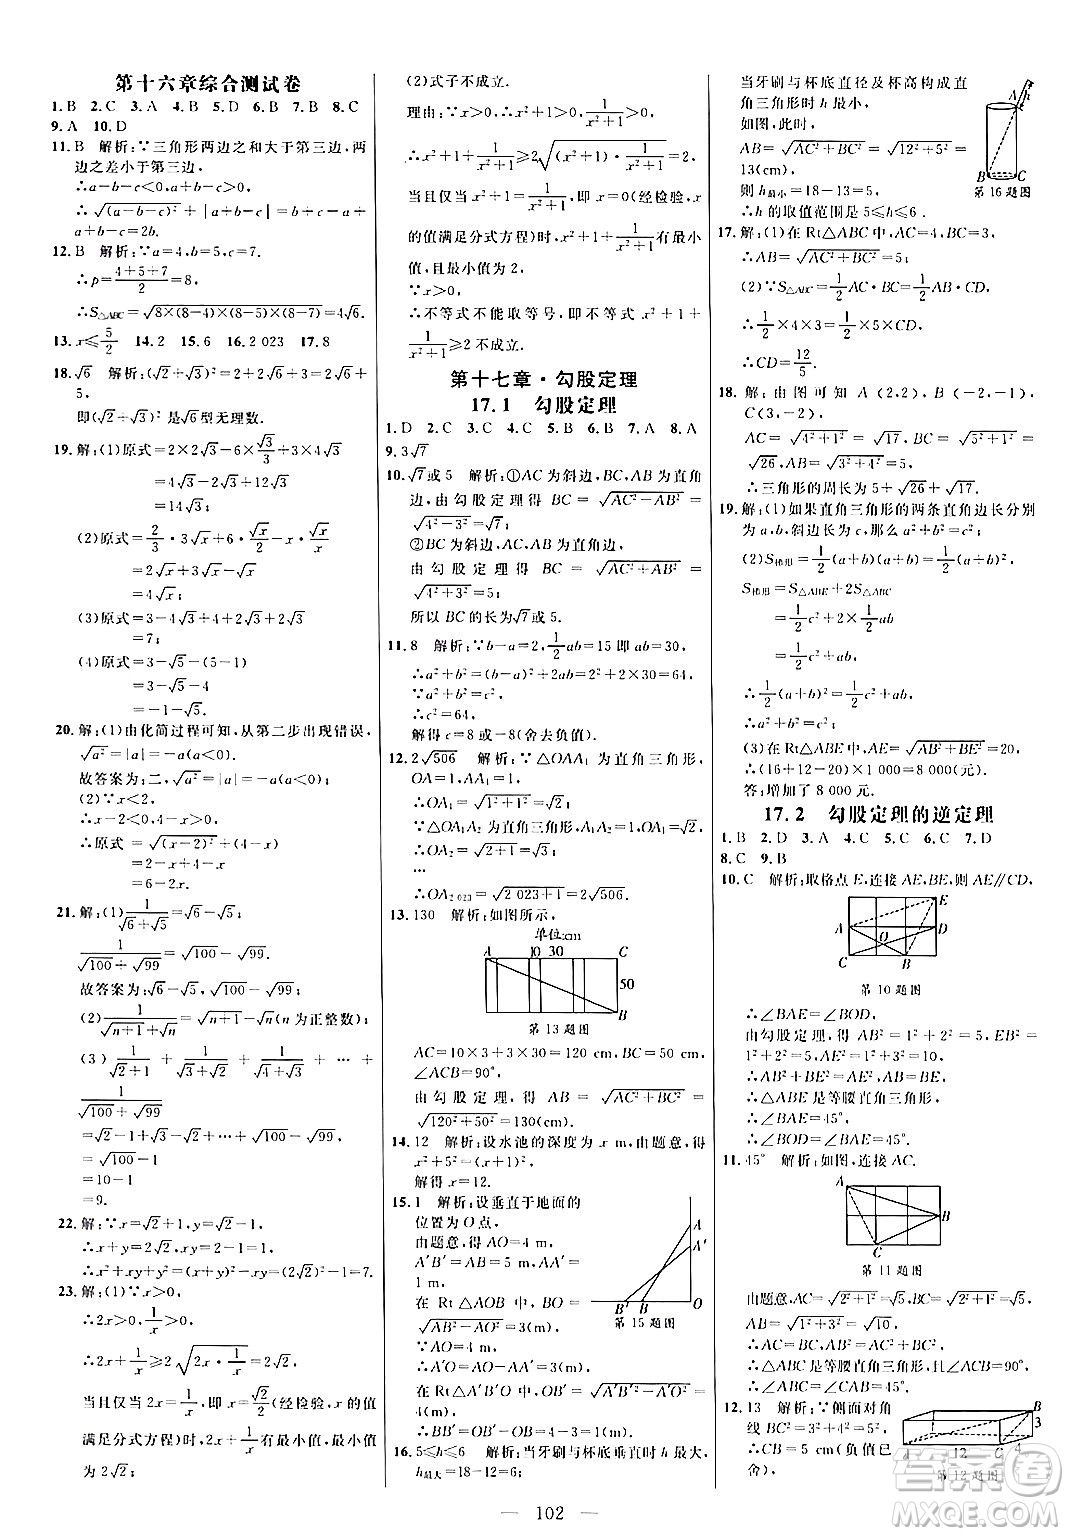 第十六章综合测试卷
1. B 2. C 3. A 4. B 5. D 6. B 7. B 8. C
9. A 10. D
11. B 解析:∵三角形两边之和大于第三边,两
边之差小于第三边,
∴a-b-c<0,a-b+c>0,
∴√((a-b-c)²)+|a-b+c|=-a+b+c+
a-b+c=2c.
12. B 解析:∵a=4,b=5,c=7.
∴p=(4+5+7)/2=8,
∴S△ABC=√(8×(8-4)×(8-5)×(8-7))=4√6.
13. x≤5/2 14. 2 15. 6 16. 2 023 17. 8
18. √6 解析:(√2+√3)²=2+2√6+3=2√6+
5.
即(√2+√3)²是√6型无理数.
19. 解:(1)原式=2×2√3-6×√3/3+3×4√3
=4√3-2√3+12√3
=14√3.
(2)原式=2/3·3√x+6·√x/2-√x
=2√x+3√x-√x
=4√x;
(3)原式=3-4√3+4+2√3+2√3
=7;
(4)原式=3-√5-(5-1)
=3-√5-4
=-1-√5.
20. 解:(1)由化简过程可知,从第二步出现错误,
√a²=|a|=-a(a<0).
故答案为:二,√a²=|a|=-a(a<0);
(2)∵x<2,
∴x-2<0,4-x>0,
∴原式=√((x-2)²)+(4-x)
=2-x+4-x
=6-2x.
21. 解:(1)1/(√6+√5)=√6-√5,
1/(√100+√99)=√100-√99.
故答案为:√6-√5,√100-√99;
(2)1/(√(n+1)+√n)=√(n+1)-√n(n为正整数);
(3)1/(√2+1)+1/(√3+√2)+1/(√4+√3)+…+
1/(√100+√99)
=√2-1+√3-√2+…+√100-√99,
=√100-1
=10-1
=9.
22. 解:∵x=√2+1,y=√2-1,
∴x+y=2√2,xy=2-1=1,
∴x²+xy+y²=(x+y)²-xy=(2√2)²-1=7.
23. 解:(1)∵x>0,
∴2x>0,1/x>0,
∴2x+1/x≥2√(2x·1/x)=2√2,
当且仅当2x=1/x,即x=√2/2(经检验,x的值
满足分式方程)时,2x+1/x有最小值,最小值
为2√2;
(2)式子不成立.
理由:∵x>0,∴x²+1>0,1/(x²+1)>0,
∴x²+1+1/(x²+1)≥2√((x²+1)·1/(x²+1))=2,
当且仅当x²+1=1/(x²+1),即x=0(经检验,x
的值满足分式方程)时,x²+1+1/(x²+1)有最小
值,且最小值为2.
∵x>0,
∴不等式不能取等号,即不等式x²+1+
1/(x²+1)≥2不成立.
第十七章·勾股定理
17.1 勾股定理
1. D 2. C 3. C 4. C 5. B 6. B 7. A 8. A
9. 3√7
10. √7或5 解析:①AC为斜边,BC,AB为直角
边,由勾股定理得BC=√(AC²-AB²)=
√(4²-3²)=√7;
②BC为斜边,AC,AB为直角边,
由勾股定理得BC=√(AC²+AB²)=
√(4²+3²)=5;
所以BC的长为√7或5.
11. 8 解析:∵b-a=2,1/2ab=15即ab=30,
∴a²+b²=(b-a)²+2ab=4+60=64,
∵a²+b²=c²,
∴c²=64,
解得c=8或-8(舍去负值).
12. 2√506 解析:∵△OAA₁为直角三角形,
OA=1,AA₁=1,
∴OA₁=√(1²+1²)=√2,
∵△OA₁A₂为直角三角形,A₁A₂=1,OA₁=√2,
∴OA₂=√(2+1)=√3,
…
∴OA₂ ₀₂₃=√(2 023+1)=2√506.
13. 130 解析:如图所示,
单位:cm
A 10 30 C
50
B
第13题图
AC=10×3+3×30=120 cm,BC=50 cm,
∠ACB=90°,
由勾股定理,得AB=√(AC²+BC²)=
√(120²+50²)=130(cm).
14. 12 解析:设水池的深度为x m,由题意,得
x²+5²=(x+1)².
解得x=12.
15. 1 解析:设垂直于地面的
位置为O点,
由题意,得AO=4 m,
A′B′=AB=5 m,AA′=
1 m,
在Rt△AOB中,BO=
√(AB²-AO²)=3(m),
∵AO=4(m),
∴A′O=AO-AA′=3(m),
在Rt△A′B′O中,B′O=√(A′B′²-A′O²)=
4(m),
∴BB′=OB′-OB=4-3=1(m).
A
A′
B′ B O
第15题图
16. 5≤h≤6 解析:当牙刷与杯底垂直时h最大,
h最大=18-12=6;
当牙刷与杯底直径及杯高构成直
角三角形时h最小,
如图,此时,
AB=√(AC²+BC²)=√(12²+5²)=
13(cm),
则h最小=18-13=5,
∴h的取值范围是5≤h≤6.
A h
B C
第16题图
17. 解:(1)在Rt△ABC中,AC=4,BC=3,
∴AB=√(AC²+BC²)=5;
(2)∵S△ABC=1/2AC·BC=1/2AB·CD,
∴1/2×4×3=1/2×5×CD,
∴CD=12/5.
18. 解:由图可知A(2,2),B(-2,-1),
C(3,-2),
∴AC=√(1²+4²)=√17,BC=√(5²+1²)=
√26,AB=√(3²+4²)=5,
∴三角形的周长为5+√26+√17.
19. 解:(1)如果直角三角形的两条直角边长分别
为a,b,斜边长为c,那么a²+b²=c²;
(2)S梯形=1/2(a+b)(a+b)=1/2(a+b)²,
S梯形=S△ABE+2S△ABC
=1/2c²+2×1/2ab
=1/2c²+ab,
∴1/2(a+b)²=1/2c²+ab,
∴a²+b²=c²;
(3)在Rt△ABE中,AE=√(AB²+BE²)=20,
∴(16+12-20)×1 000=8 000(元).
答:增加了8 000元.
17.2 勾股定理的逆定理
1. B 2. D 3. A 4. C 5. C 6. C 7. D
8. C 9. B
10. C 解析:取格点E,连接AE,BE,则AE∥CD,
E
A O D
C B
第10题图
∴∠BAE=∠BOD,
由勾股定理,得AB²=1²+2²=5,EB²=
1²+2²=5,AE²=1²+3²=10,
∴AB²+BE²=AE²,
∴△ABE是等腰直角三角形,
∴∠BAE=45°,
∴∠BOD=∠BAE=45°.
11. 45° 解析:如图,连接AC.
A
B
C
第11题图
由题意,AC=√(2²+1²)=√5,BC=√(2²+1²)=√5,
AB=√(1²+3²)=√10,
∴AC=BC,AB²=AC²+BC²,
∴△ABC是等腰直角三角形,且∠ACB=90°,
∴∠ABC=∠CAB=45°.
12. 13 解析:∵侧面对角
线BC²=3²+4²=5²,
∴CB=5 cm(负值已
舍),
B
3
4
A 12 C
第12题图
— 102 —
答案圈
MXQE.COM